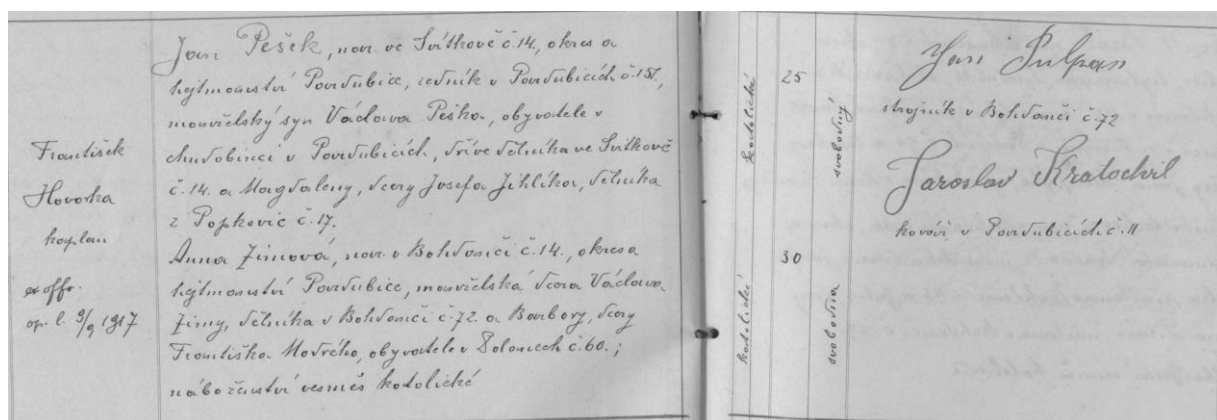 František
Hovorka
kaplan
ex offo.
op. l. 9/9 1917
Jan Pešek, nar. ve Svítkově č. 14., okres a
hejtmanství Pardubice, zedník v Pardubicích č. 157,
manželský syn Václava Peška, obyvatele v
chudobinci v Pardubicích, dříve dělníka ve Svítkově
č. 14. a Magdaleny, dcery Josefa Jihlíka, dělníka
z Popkovic č. 17.
Anna Zimová, nar. v Bohdanči č. 14., okres a
hejtmanství Pardubice, manželská dcera Václava
Zimy, dělníka v Bohdanči č. 72. a Barbory, dcery
Františka Modrého, obyvatele v Dolanech č. 60.;
náboženství vesměs katolické
katolické
25
svobodný
katolické
30
svobodna
Jan Pulpan
strojník v Bohdanči č. 72
Jaroslav Kratochvil
kovář v Pardubicích č. 11